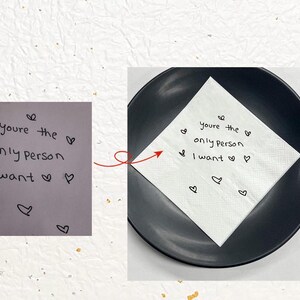 youre the
only person
want
youre the
only person
I want